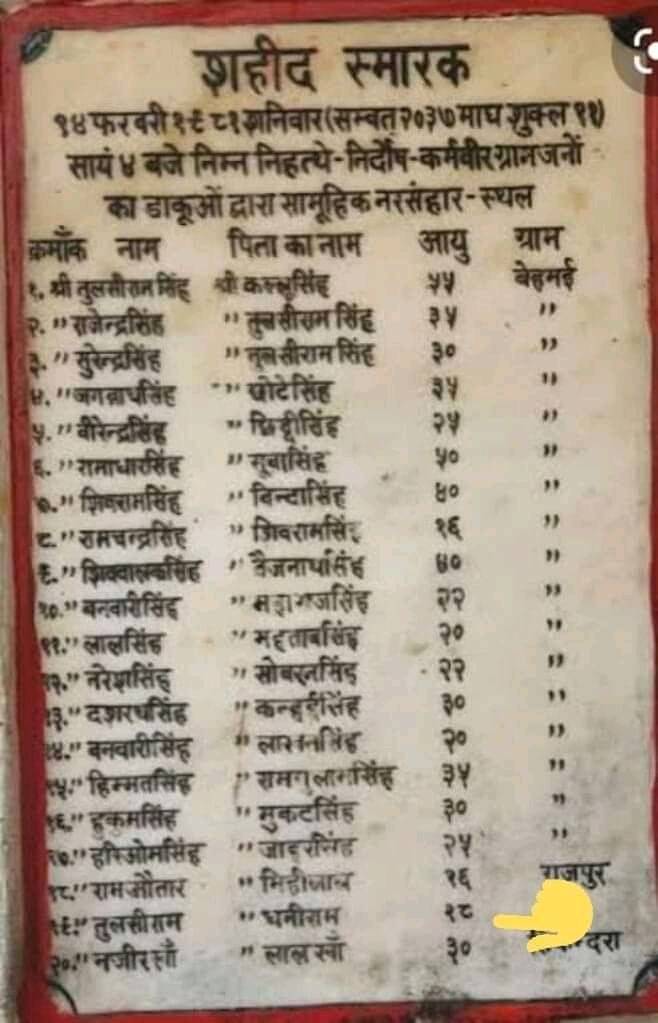 शहीद स्मारक
१४ फरवरी १९८१ शनिवार (सम्वत् २०३७ माघ शुक्ल ११)
सायं ४ बजे निम्न निहत्थे-निर्दोष-कर्मवीर ग्रामजनों
का डाकूओं द्वारा सामूहिक नरसंहार-स्थल
क्रमाँक नाम पिता का नाम आयु ग्राम
१. श्री तुलसीराम सिंह श्री कल्लूसिंह ५५ बेहमई
२. " राजेन्द्रसिंह " तुलसीराम सिंह ३५ "
३. " सुरेन्द्रसिंह " तुलसीराम सिंह ३० "
४. " जगन्नाथसिंह " छोटेसिंह ३५ "
५. " वीरेन्द्रसिंह " छिद्दीसिंह २५ "
६. " रामाधारसिंह " सूबासिंह ५० "
७. " शिवरामसिंह " बिन्दासिंह ४० "
८. " रामचन्द्रसिंह " शिवरामसिंह १६ "
९. " शिवबालकसिंह " बैजनाथसिंह ४० "
१०. " बनवारीसिंह " महाराजसिंह २२ "
११. " लालसिंह " महताबसिंह २० "
१२. " नरेशसिंह " सोबरनसिंह २२ "
१३. " दशरथसिंह " कन्हईसिंह ३० "
१४. " बनवारीसिंह " लाखनसिंह २० "
१५. " हिम्मतसिंह " रामगुलामसिंह ३५ "
१६. " हुकमसिंह " मुकटसिंह ३० "
१७. " हरिओमसिंह " जादूरसिंह २५ "
१८. " रामऔतार " १६ राजपुर
१९. " तुलसीराम " धनीराम १८
२०. " नजीरखाँ " लालखाँ ३०